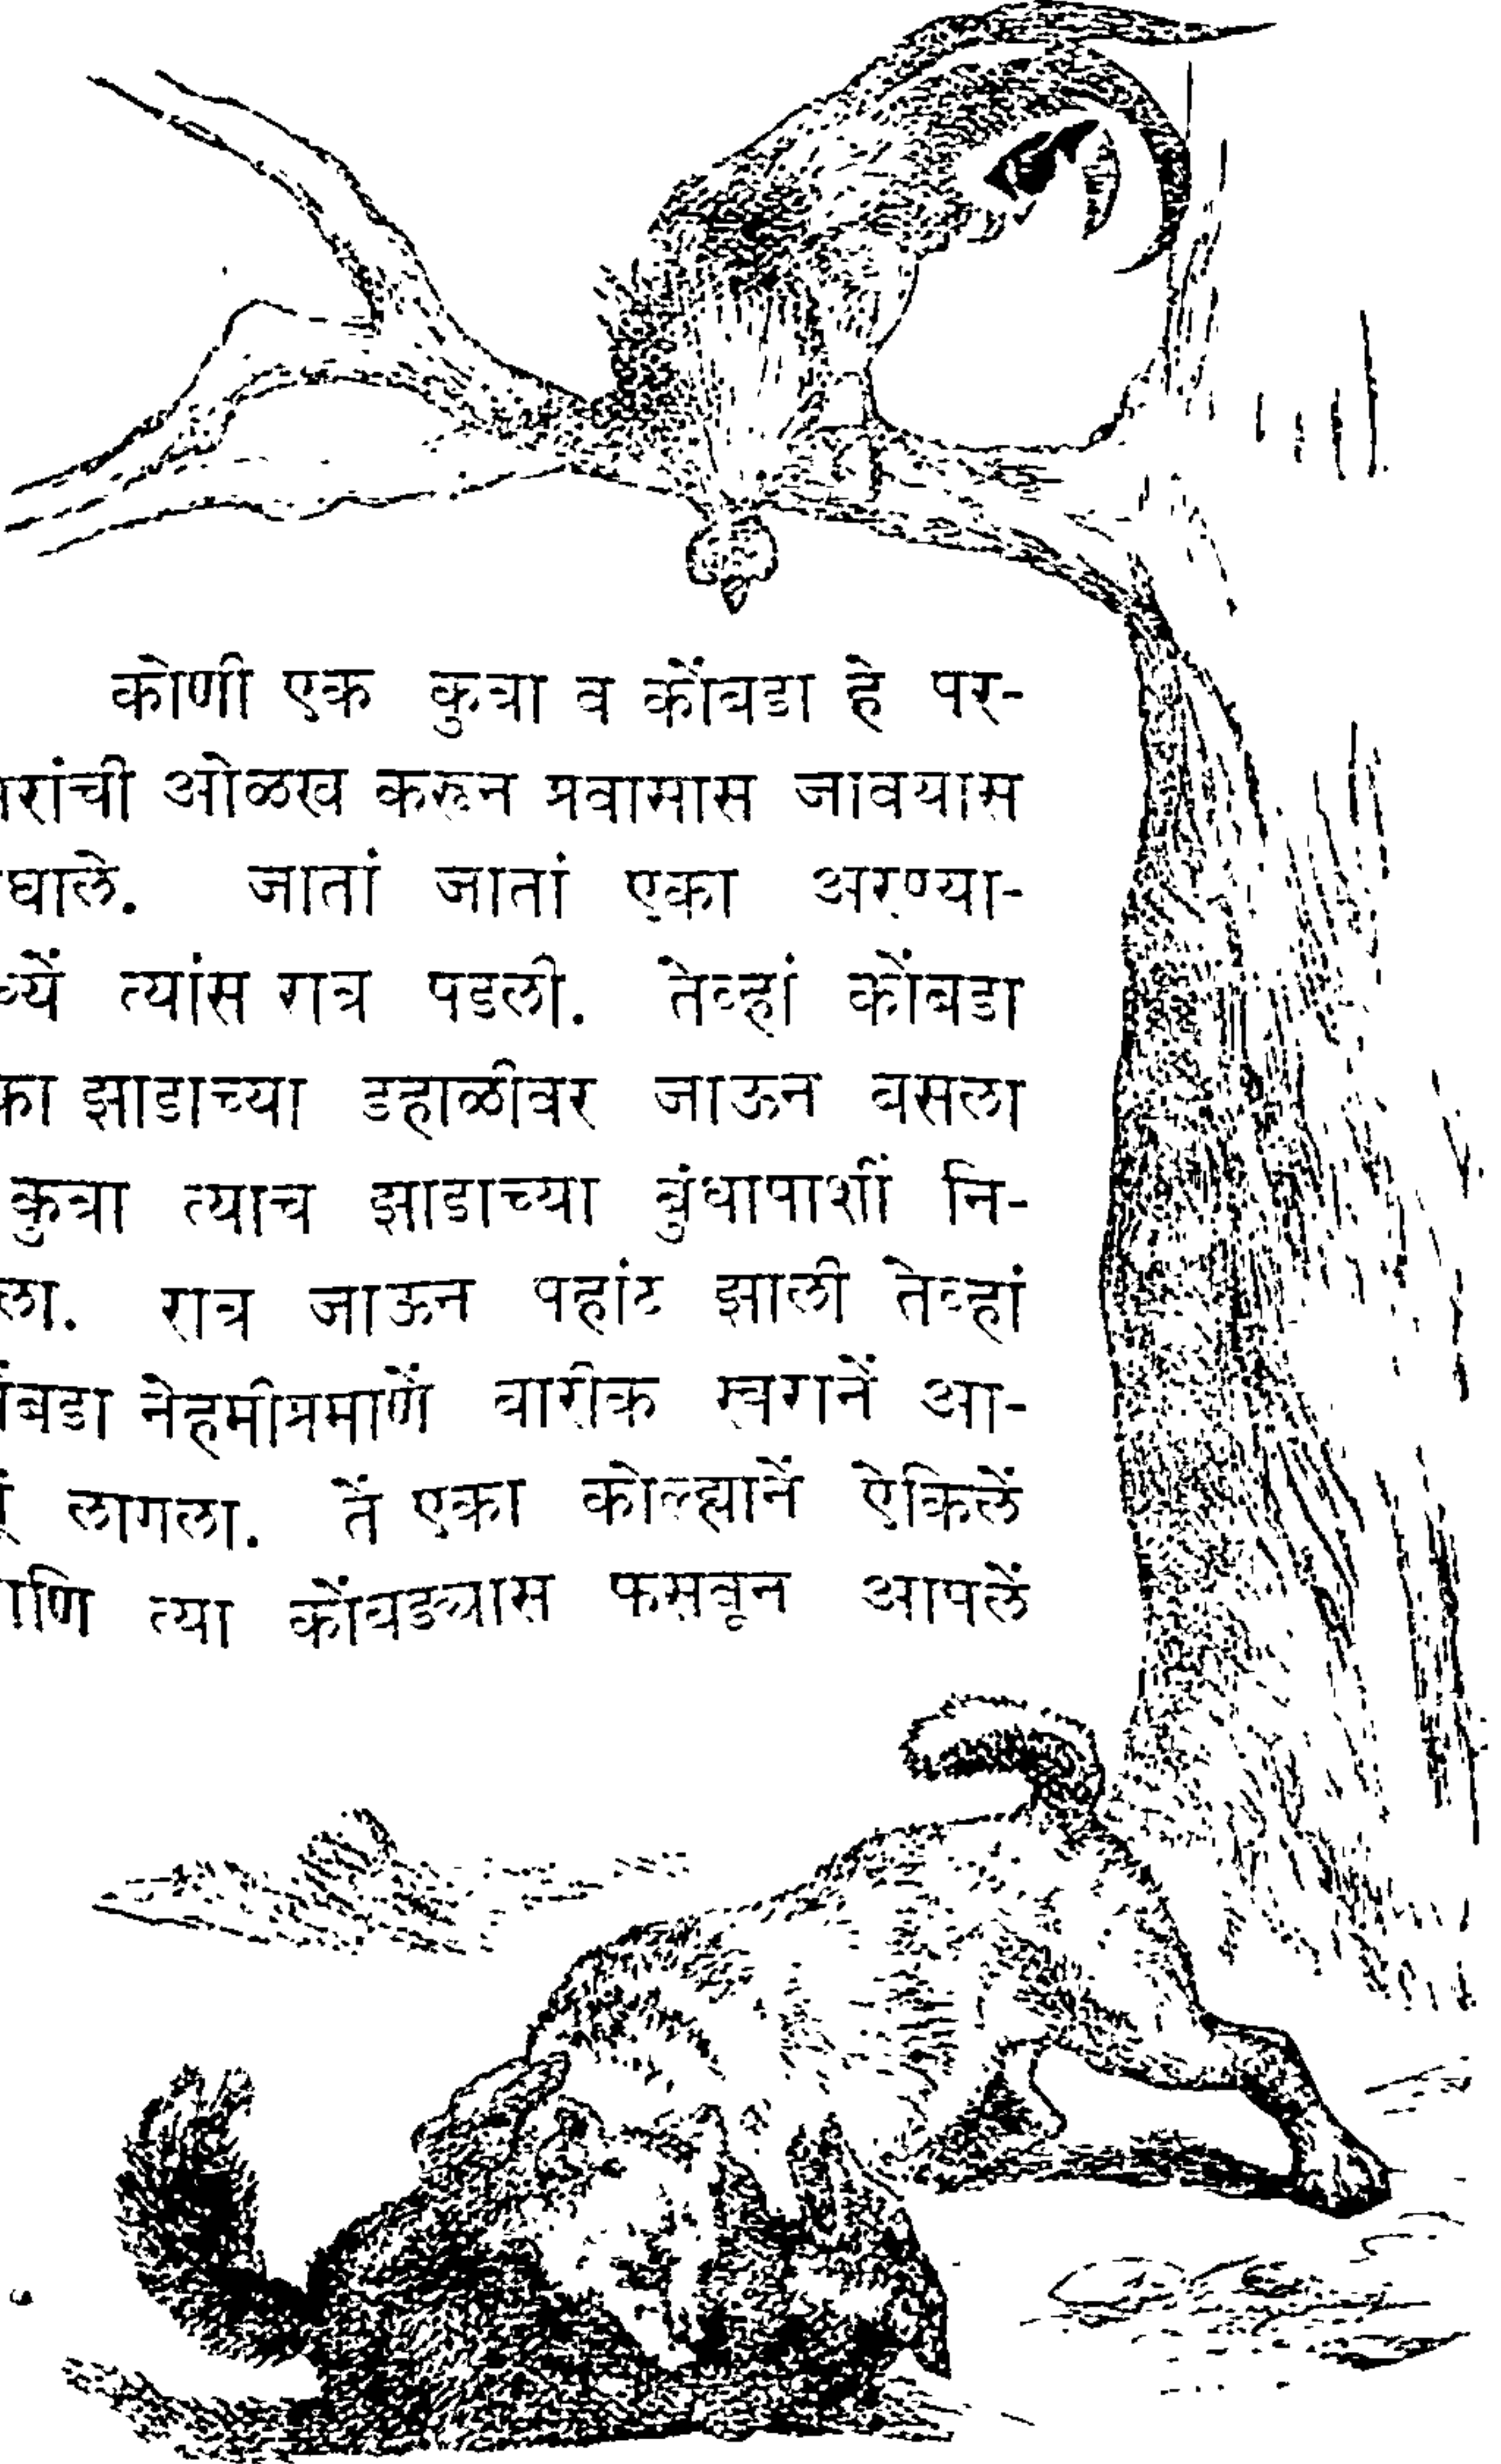 कोणी एक कुत्रा व कोंबडा हे पर-
रांची ओळख करून प्रवासास जावयास
घाले. जातां जातां एका अरण्या-
ध्यें त्यांस रात्र पडली. तेव्हां कोंबडा
का झाडाच्या डहाळीवर जाऊन बसला
कुत्रा त्याच झाडाच्या बुंधापाशीं नि-
ला. रात्र जाऊन पहांट झाली तेव्हां
ंबडा नेहमीप्रमाणें बारीक स्वरानें आ-
लागला. तें एका कोल्ह्यानें ऐकिलें
ाणि त्या कोंबड्यास फसवून आपलें